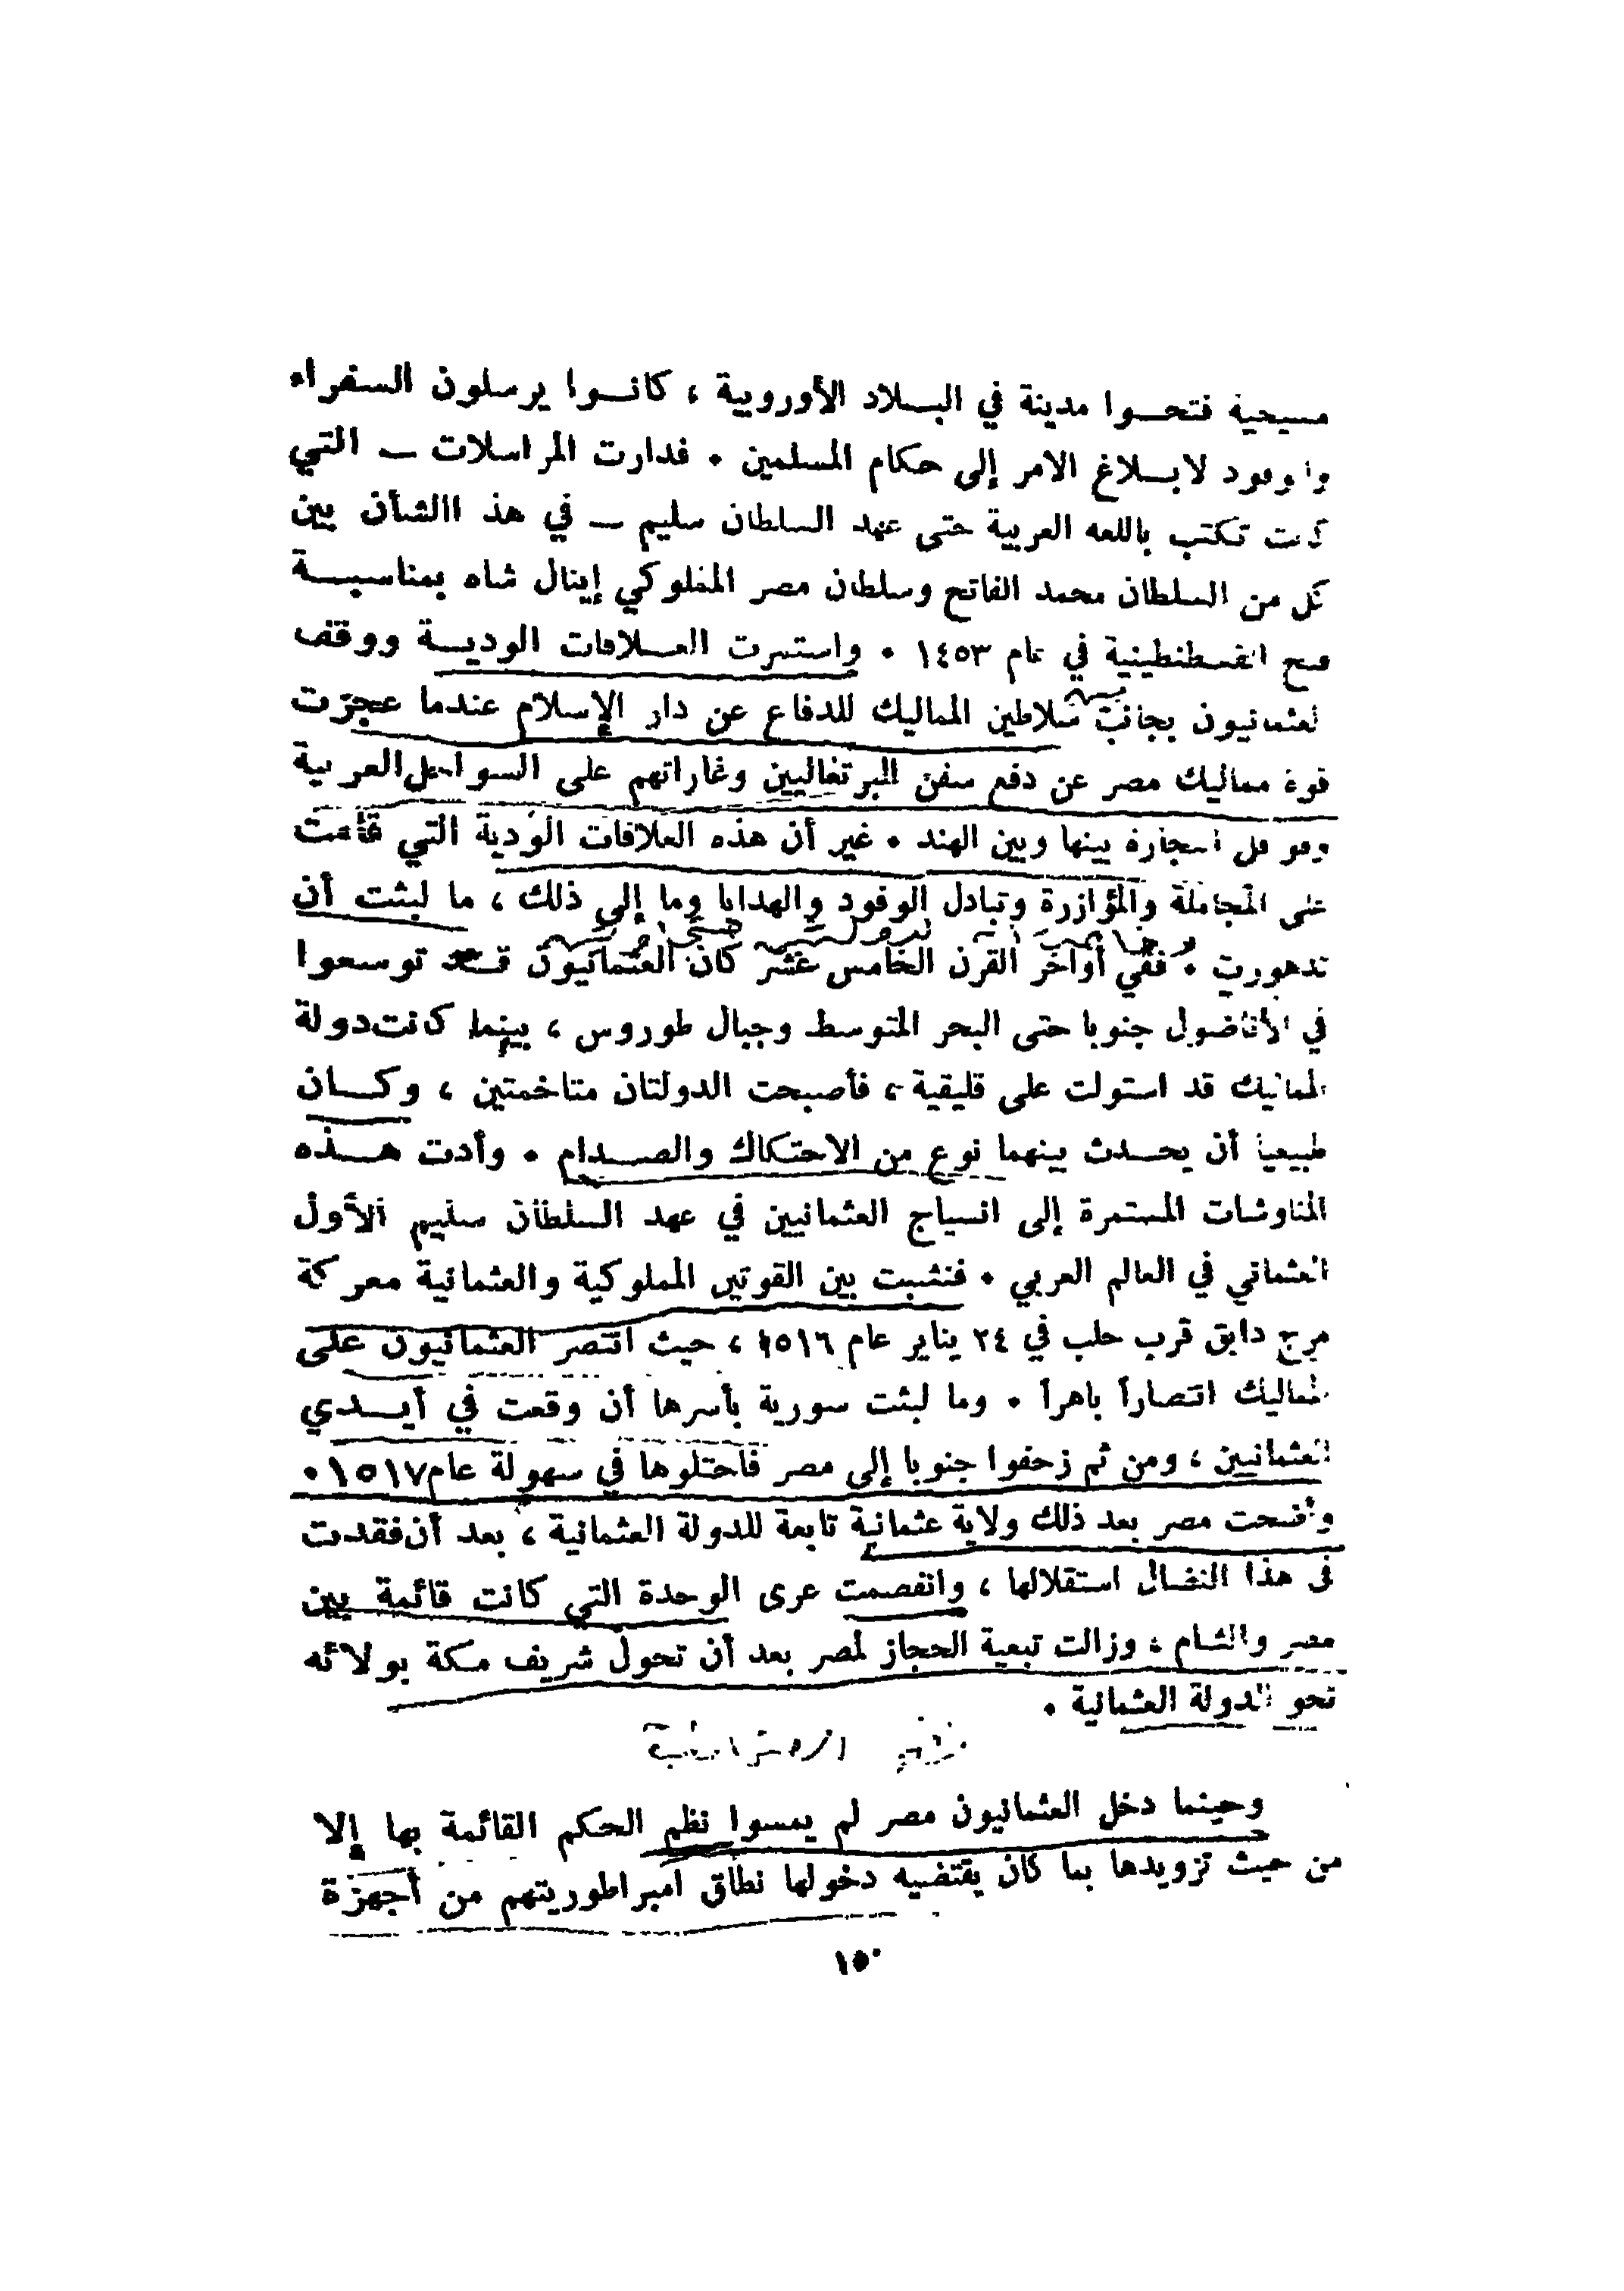 مسيحية فتحوا مدينة في البلاد الأوروبية ، كانوا يرسلون السفراء
والوفود لابلاغ الامر إلى حكام المسلمين . فدارت المراسلات — التي
كانت تكتب باللغه العربية حتى عهد السلطان سليم — في هذ االشأن بين
كل من السلطان محمد الفاتح وسلطان مصر المملوكي إينال شاه بمناسبة
فتح القسطنطينية في عام ١٤٥٣ . واستمرت العلاقات الودية ووقف
العثمانيون بجانب سلاطين المماليك للدفاع عن دار الإسلام عندما عجزت
قوة مماليك مصر عن دفع سفن البرتغاليين وغاراتهم على السواحل العربية
وقوافل التجارة بينها وبين الهند . غير أن هذه العلاقات الودية التي قامت
على المجاملة والمؤازرة وتبادل الوفود والهدايا وما إلى ذلك ، ما لبثت أن
تدهورت . ففي أواخر القرن الخامس عشر كان العثمانيون قد توسعوا
في الأناضول جنوبا حتى البحر المتوسط وجبال طوروس ، بينما كانت دولة
المماليك قد استولت على قليقية ، فأصبحت الدولتان متاخمتين ، وكان
طبيعيا أن يحدث بينهما نوع من الاحتكاك والصدام . وأدت هذه
المناوشات المستمرة إلى انسياح العثمانيين في عهد السلطان سليم الأول
العثماني في العالم العربي . فنشبت بين القوتين المملوكية والعثمانية معركة
مرج دابق قرب حلب في ٢٤ يناير عام ١٥١٦ ، حيث انتصر العثمانيون على
المماليك انتصاراً باهراً . وما لبثت سورية بأسرها أن وقعت في أيدي
العثمانيين ، ومن ثم زحفوا جنوبا إلى مصر فاحتلوها في سهولة عام ١٥١٧ .
وأضحت مصر بعد ذلك ولاية عثمانية تابعة للدولة العثمانية ، بعد أن فقدت
في هذا النضال استقلالها ، وانفصمت عرى الوحدة التي كانت قائمة بين
مصر والشام ، وزالت تبعية الحجاز لمصر بعد أن تحول شريف مكة بولائه
نحو الدولة العثمانية .
وحينما دخل العثمانيون مصر لم يمسوا نظم الحكم القائمة بها إلا
من حيث تزويدها بما كان يقتضيه دخولها نطاق امبراطوريتهم من أجهزة
١٥٠